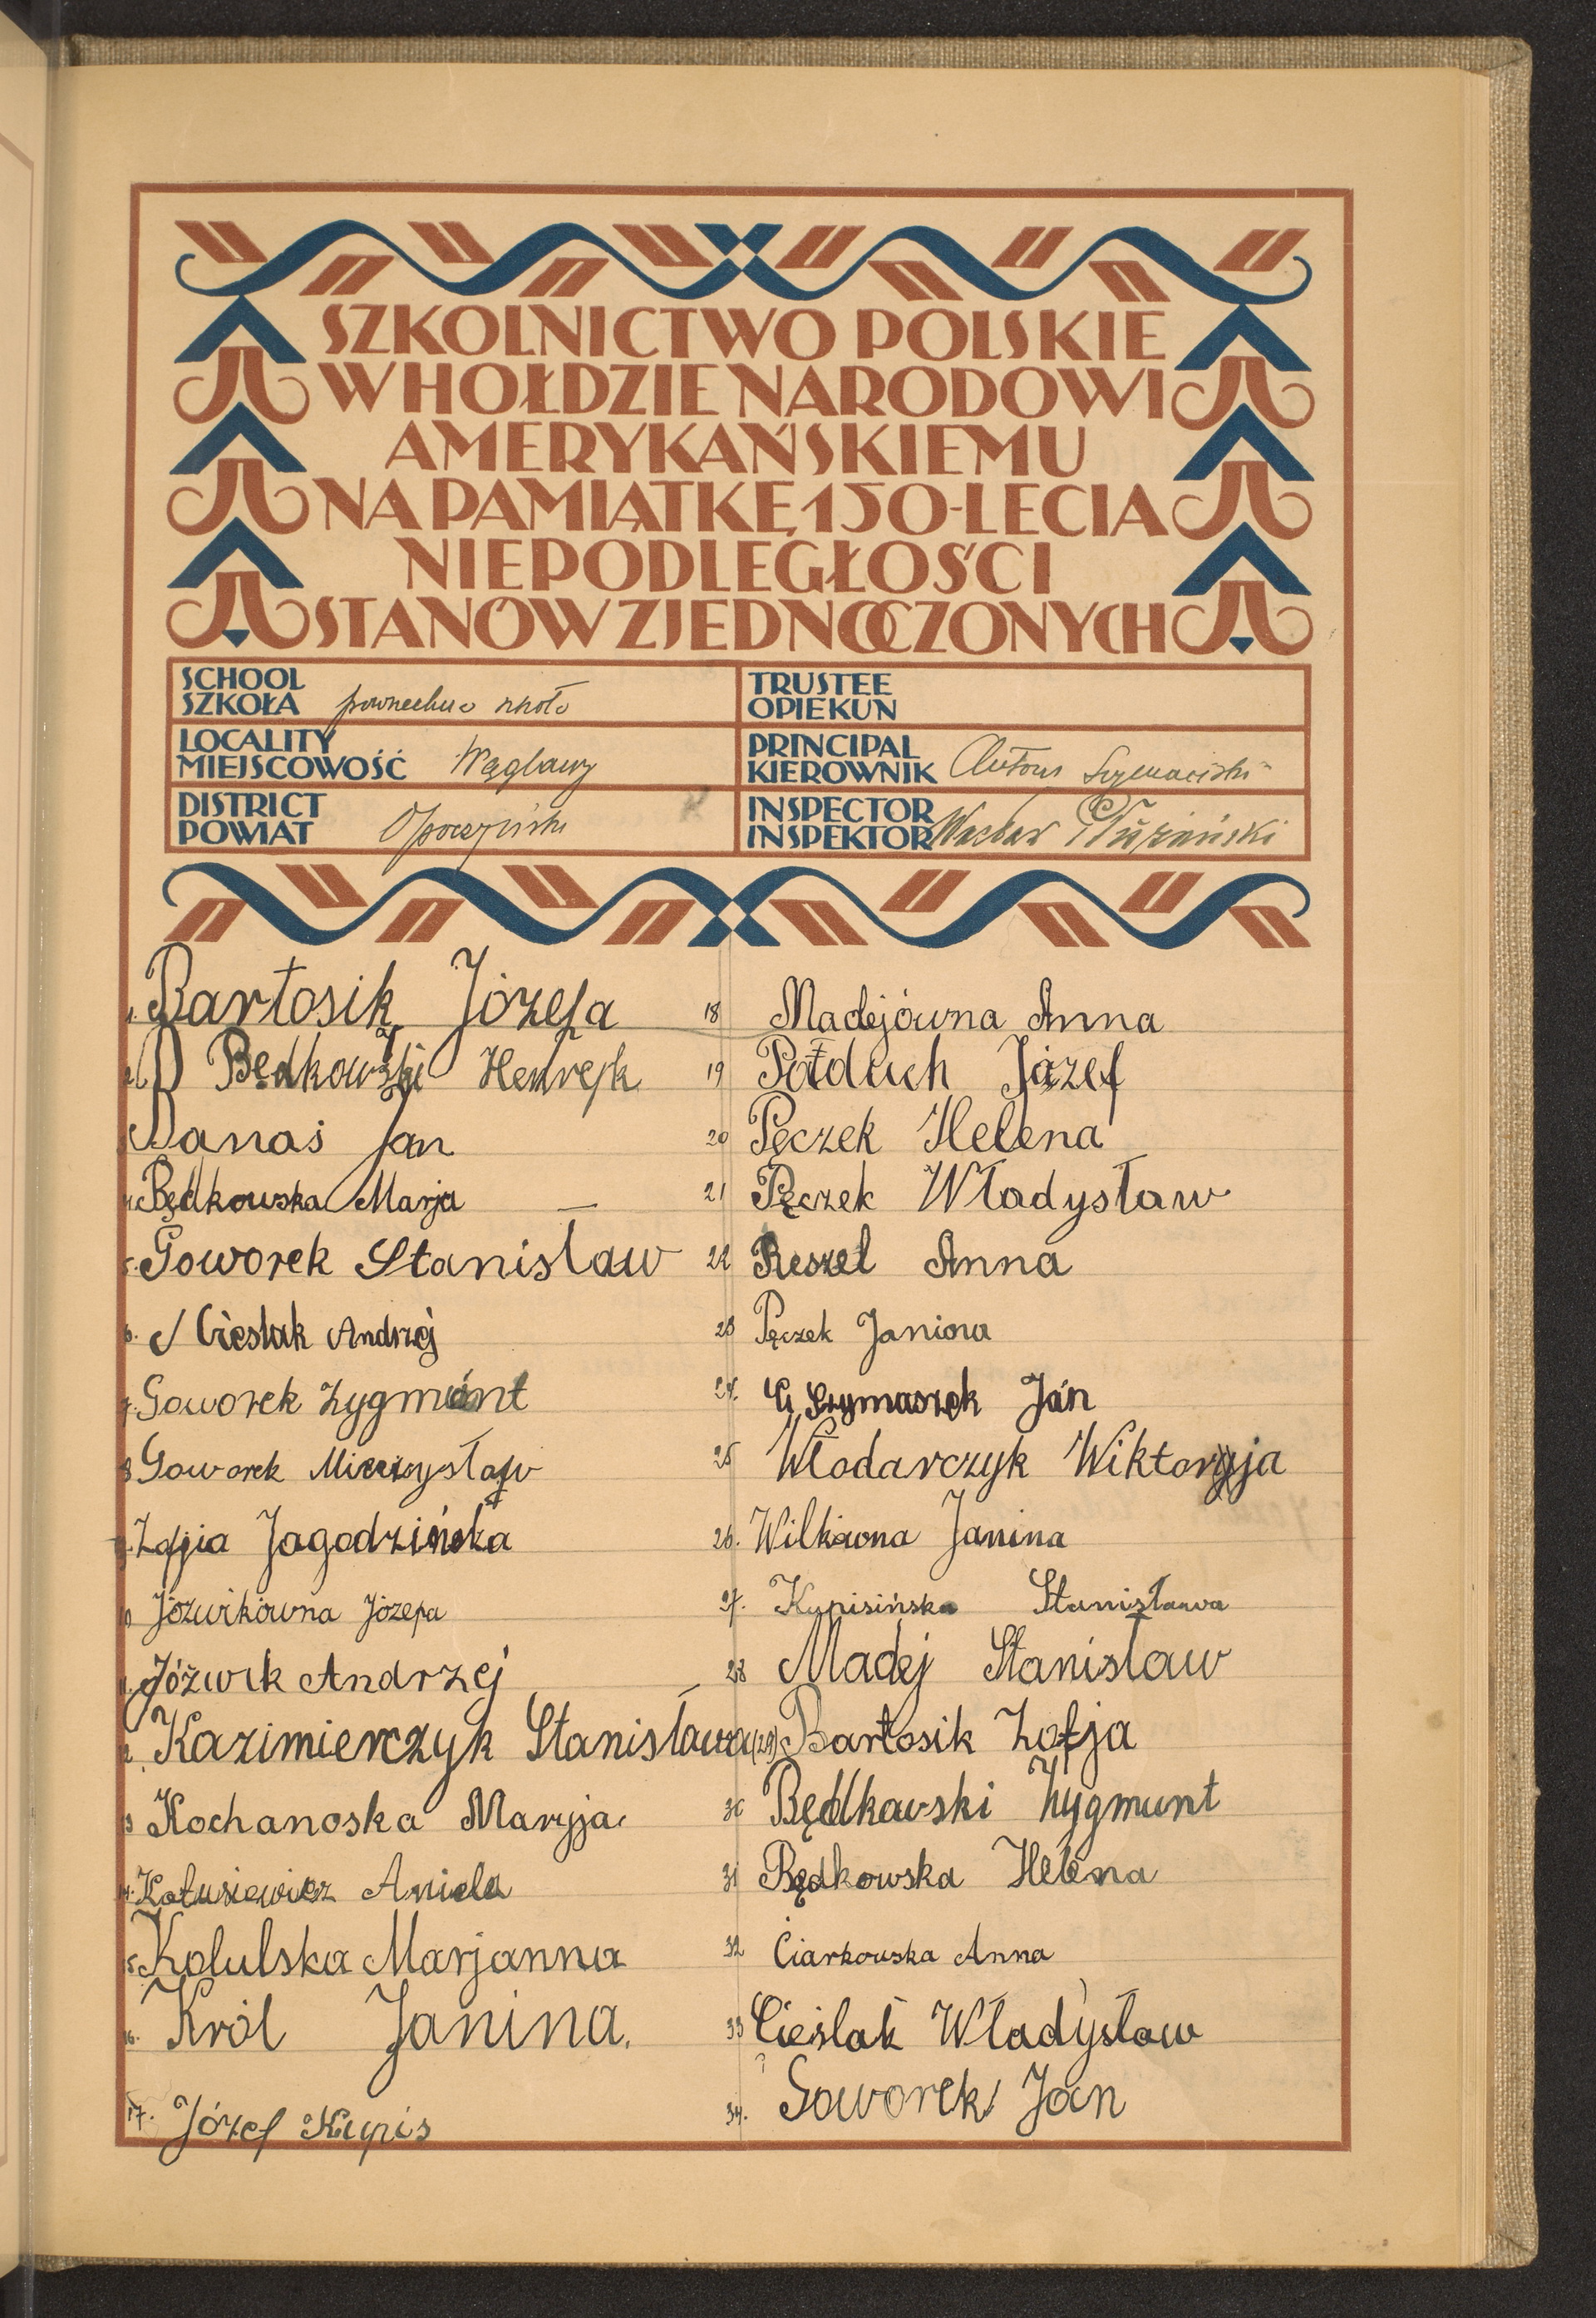 SZKOLNICTWO POLSKIE
W HOŁDZIE NARODOWI
AMERYKAŃSKIEMU
NA PAMIĄTKĘ 150-LECIA
NIEPODLEGŁOŚCI
STANÓW ZJEDNOCZONYCH
SCHOOL
SZKOŁA
TRUSTEE
OPIEKUN
LOCALITY
MIEJSCOWOŚĆ
PRINCIPAL
KIEROWNIK
DISTRICT
POWIAT Opoczyński
INSPECTOR
INSPEKTOR Wacław
1. Bartosik Józefa
Będkowski Henryk
Banaś Jan
4. Będkowska Marja
5. Goworek Stanisław
6. Cieslak Andrzej
7. Goworek Zygmunt
8 Goworek Mieczysław
9. Zofja Jagodzińska
10 Józwikówna Józefa
11. Jóźwik Andrzej
12. Kazimierczyk Stanisława
13 Kochanoska Maryja
14. Aniela
15. Kolulska Marjanna
16. Król Janina.
17. Józef Kupis
18 Madejówna Anna
19 Połduch Józef
20 Pęczek Helena
21 Pęczek Władysław
22 Reszel Anna
23 Pęczek Janiona
24. Szymaszek Jan
25 Włodarczyk Wiktoryja
26. Wilkówna Janina
27. Kupisińska Stanisława
28 Madej Stanisław
(29) Bartosik Zofja
30 Będkowski Zygmunt
31 Będkowska Helena
32 Ciarkowska Anna
33 Cieślak Władysław
34. Goworek Jan